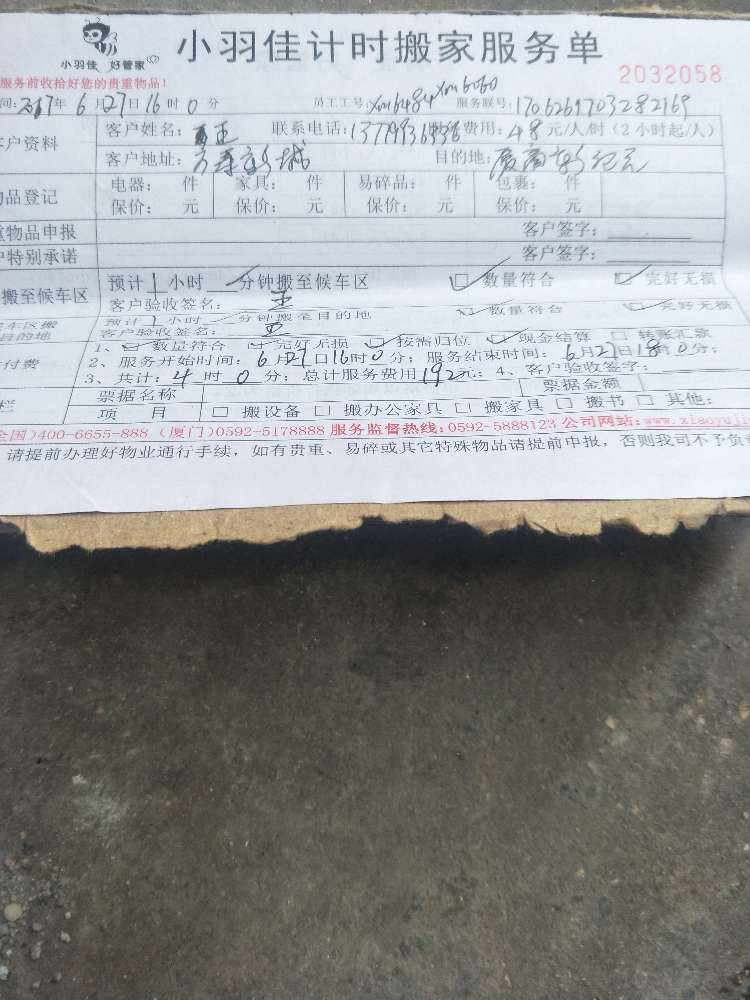 小羽佳计时搬家服务单
小羽佳 好管家
2032058
服务前收拾好您的贵重物品!
间:2017年 6月27日16时0分 员工工号:xm6484xm6060 服务联号:1706261703282169
户资料 客户姓名: 王 联系电话: 费用:48元/人/时(2小时起/人)
客户地址:万寿新城 目的地:厦商新纪元
物品登记 电器: 件 家具: 件 易碎品: 件 包裹: 件
保价: 元 保价: 元 保价: 元 保价: 元
重物品申报 客户签字:
户特别承诺 客户签字:
搬至候车区 预计1小时 分钟搬至候车区 ☑数量符合 ☑完好无损
客户验收签名: 王
车区搬目的地 预计1小时 分钟搬至目的地 ☑数量符合 ☑完好无损
客户验收签名: 王
付费 1、☑数量符合 ☑完好无损 ☑按需归位 ☑现金结算 □转账汇款
2、服务开始时间:6月27日16时0分;服务结束时间:6月27日18时0分;
3、共计:4时0分;总计服务费用192元;4、客户验收签字:
栏 票据名称 票据金额
项 目 □搬设备 □搬办公家具 □搬家具 □搬书 □其他:
全国)400-6655-888 (厦门)0592-5178888 服务监督热线:0592-5888123 公司网站:www.xiaoyuji
请提前办理好物业通行手续,如有贵重、易碎或其它特殊物品请提前申报,否则我司不予负